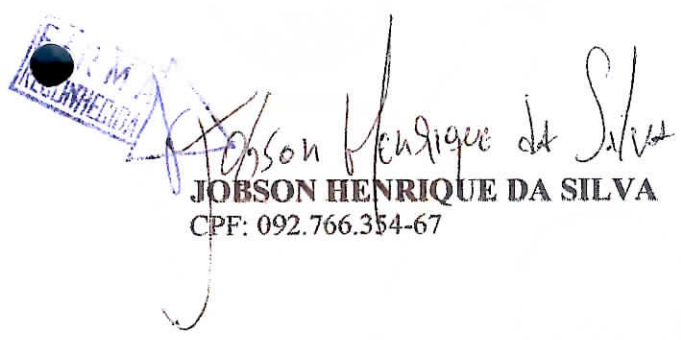 FIRMA
RECONHECIDA
Jobson Henrique da Silva
JOBSON HENRIQUE DA SILVA
CPF: 092.766.354-67